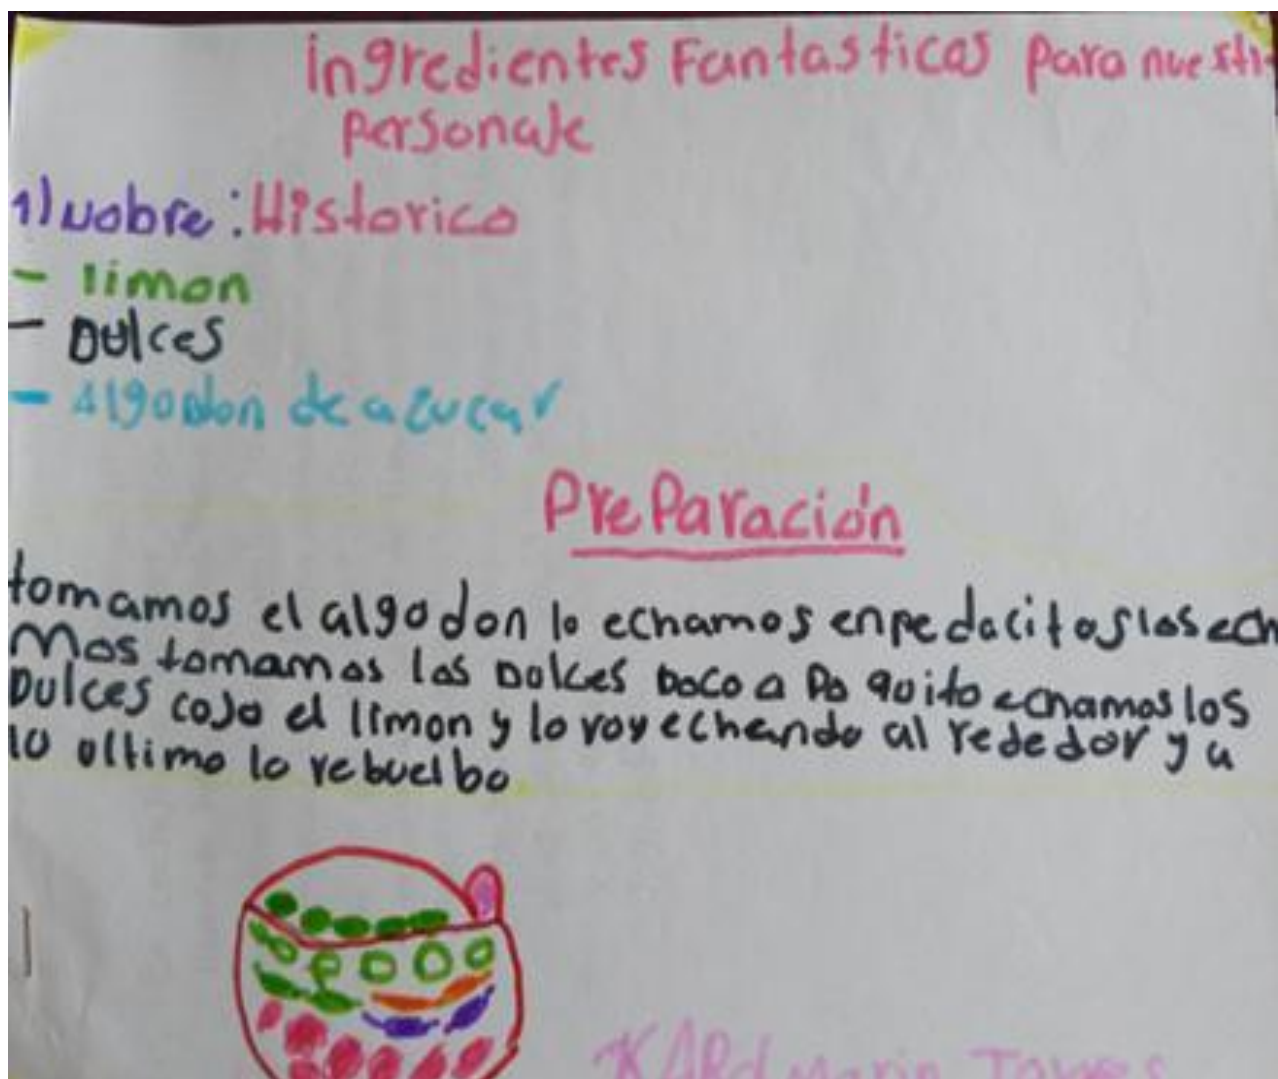 ingredientes Fantasticos para nuestr
personaje
1) Nobre: Historico
- limon
- Dulces
- Algodon de azucar
Preparación
tomamos el algodon lo echamos enpedacitos los ech
Mos tomamos los Dolces poco a Po quito echamos los
Dulces cojo el limon y lo voy echando al rededor y a
lo ultimo lo rebuelbo